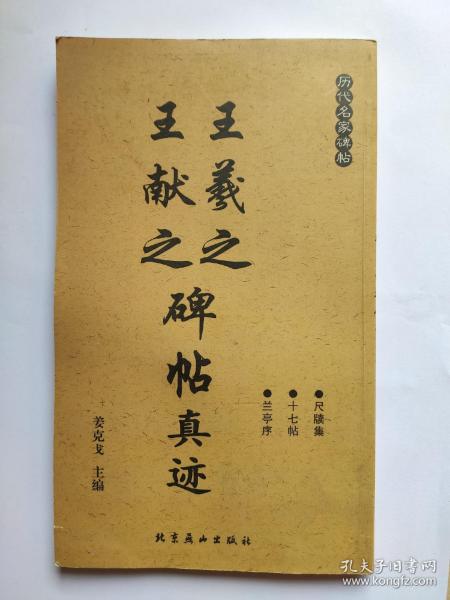 历代名家碑帖
王羲之
王献之
碑帖真迹
●尺牍集
●十七帖
●兰亭序
姜克戈 主编
北京燕山出版社
孔夫子旧书网
www.kongfz.com